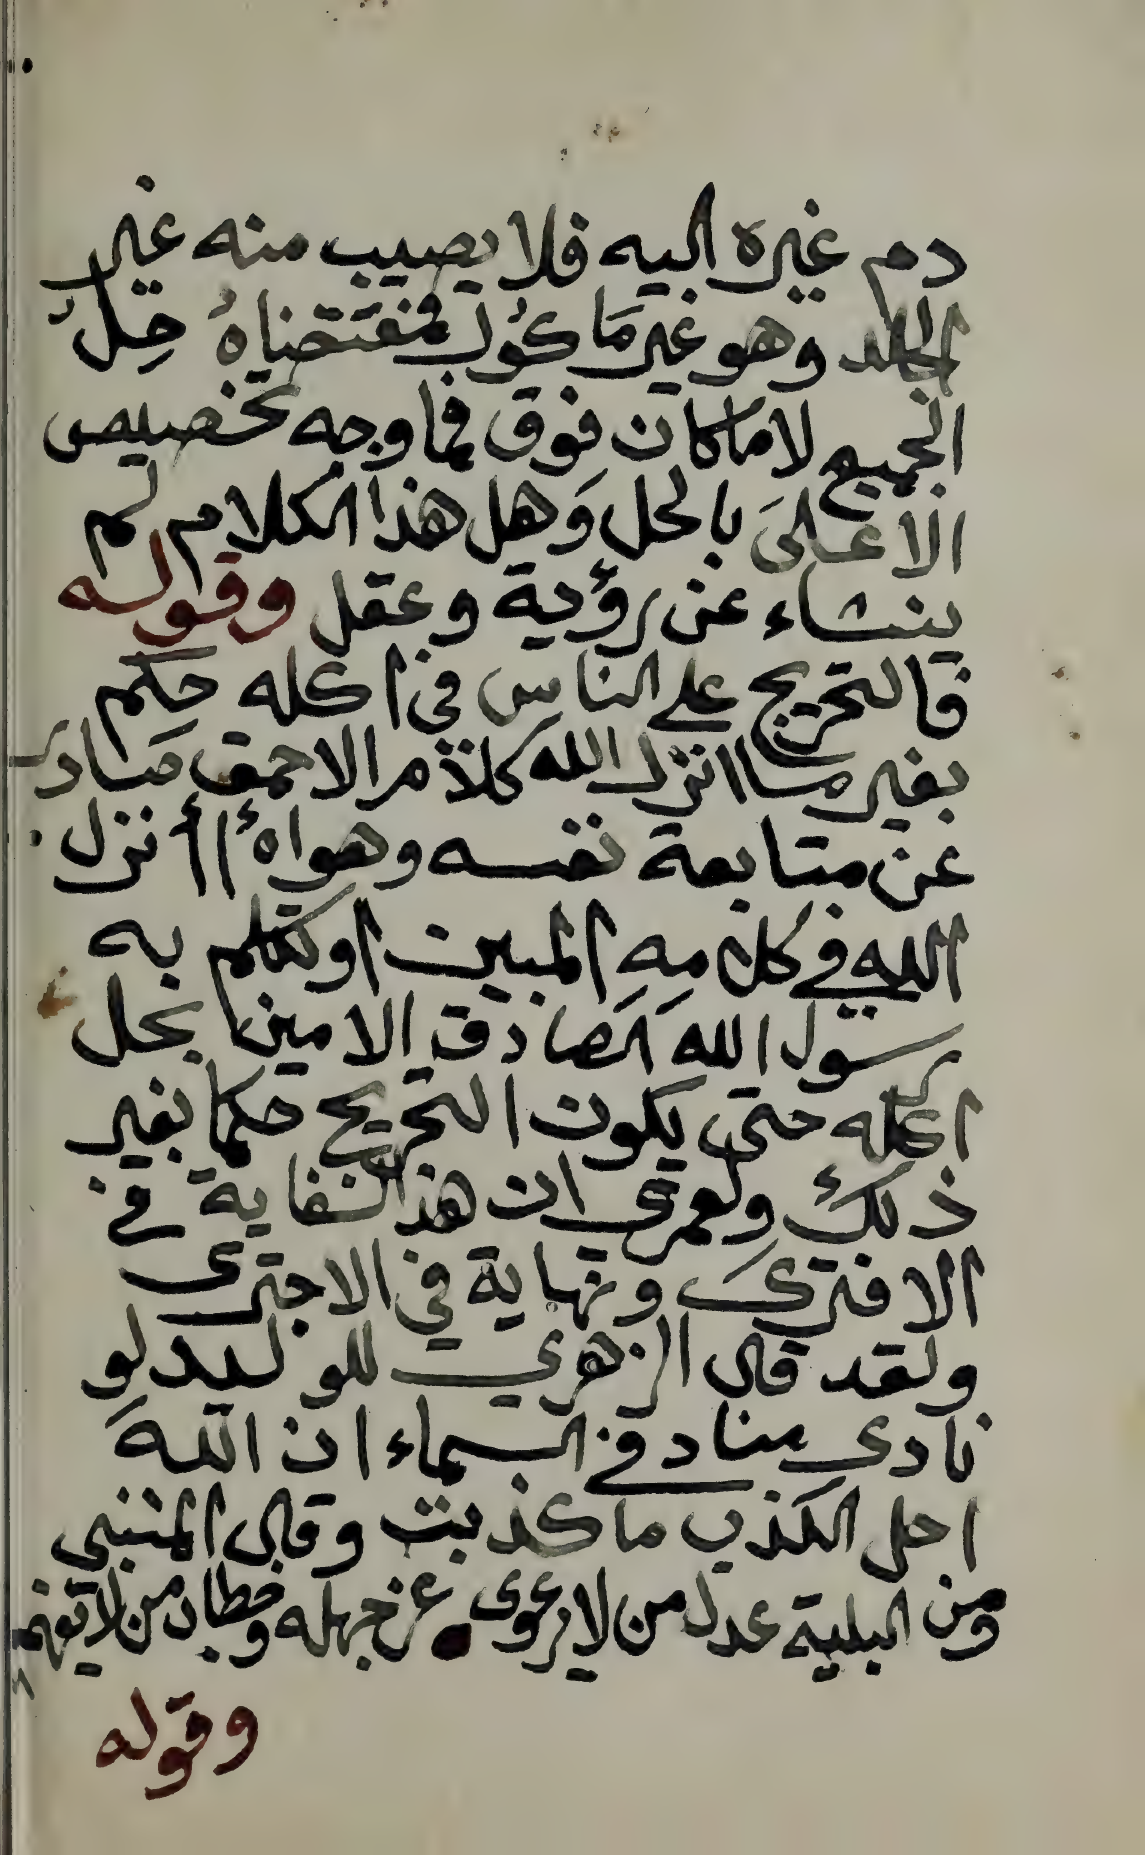 دم غيره اليه فلا يصيب منه غير
الجلد وهو غير مَاكُول فمُقتَضَاهُ حِلُّ
الجميع لا ما كان فوق فما وجه تخصيص
الاعلىَ بالحل وَهل هذا الكلام لم
ينشاء عن رؤية وعقل وقوله
فالتحريج على الناس في اكله حكم
بغير ما انزل الله كلام الاحمق صادر
عن متابعة نفسه وهواهُ أأنزل
الله في كلامِهِ المبين او تكلم به
رسول الله الصادق الامين بحل
اكله حتى يكون التحريج حكما بغير
ذلك ولعمرى ان هذا لغاية في
الافترىَ ونهاية في الاجترى
ولقد قال الزهري للوليد لو
نادى مناد في السماء ان اللهَ
احل الكذب ما كذبت وقال المتنبي
ومن البلية عدل من لا يرعوى عن جهله وخطاب من لا يفهم
وقوله